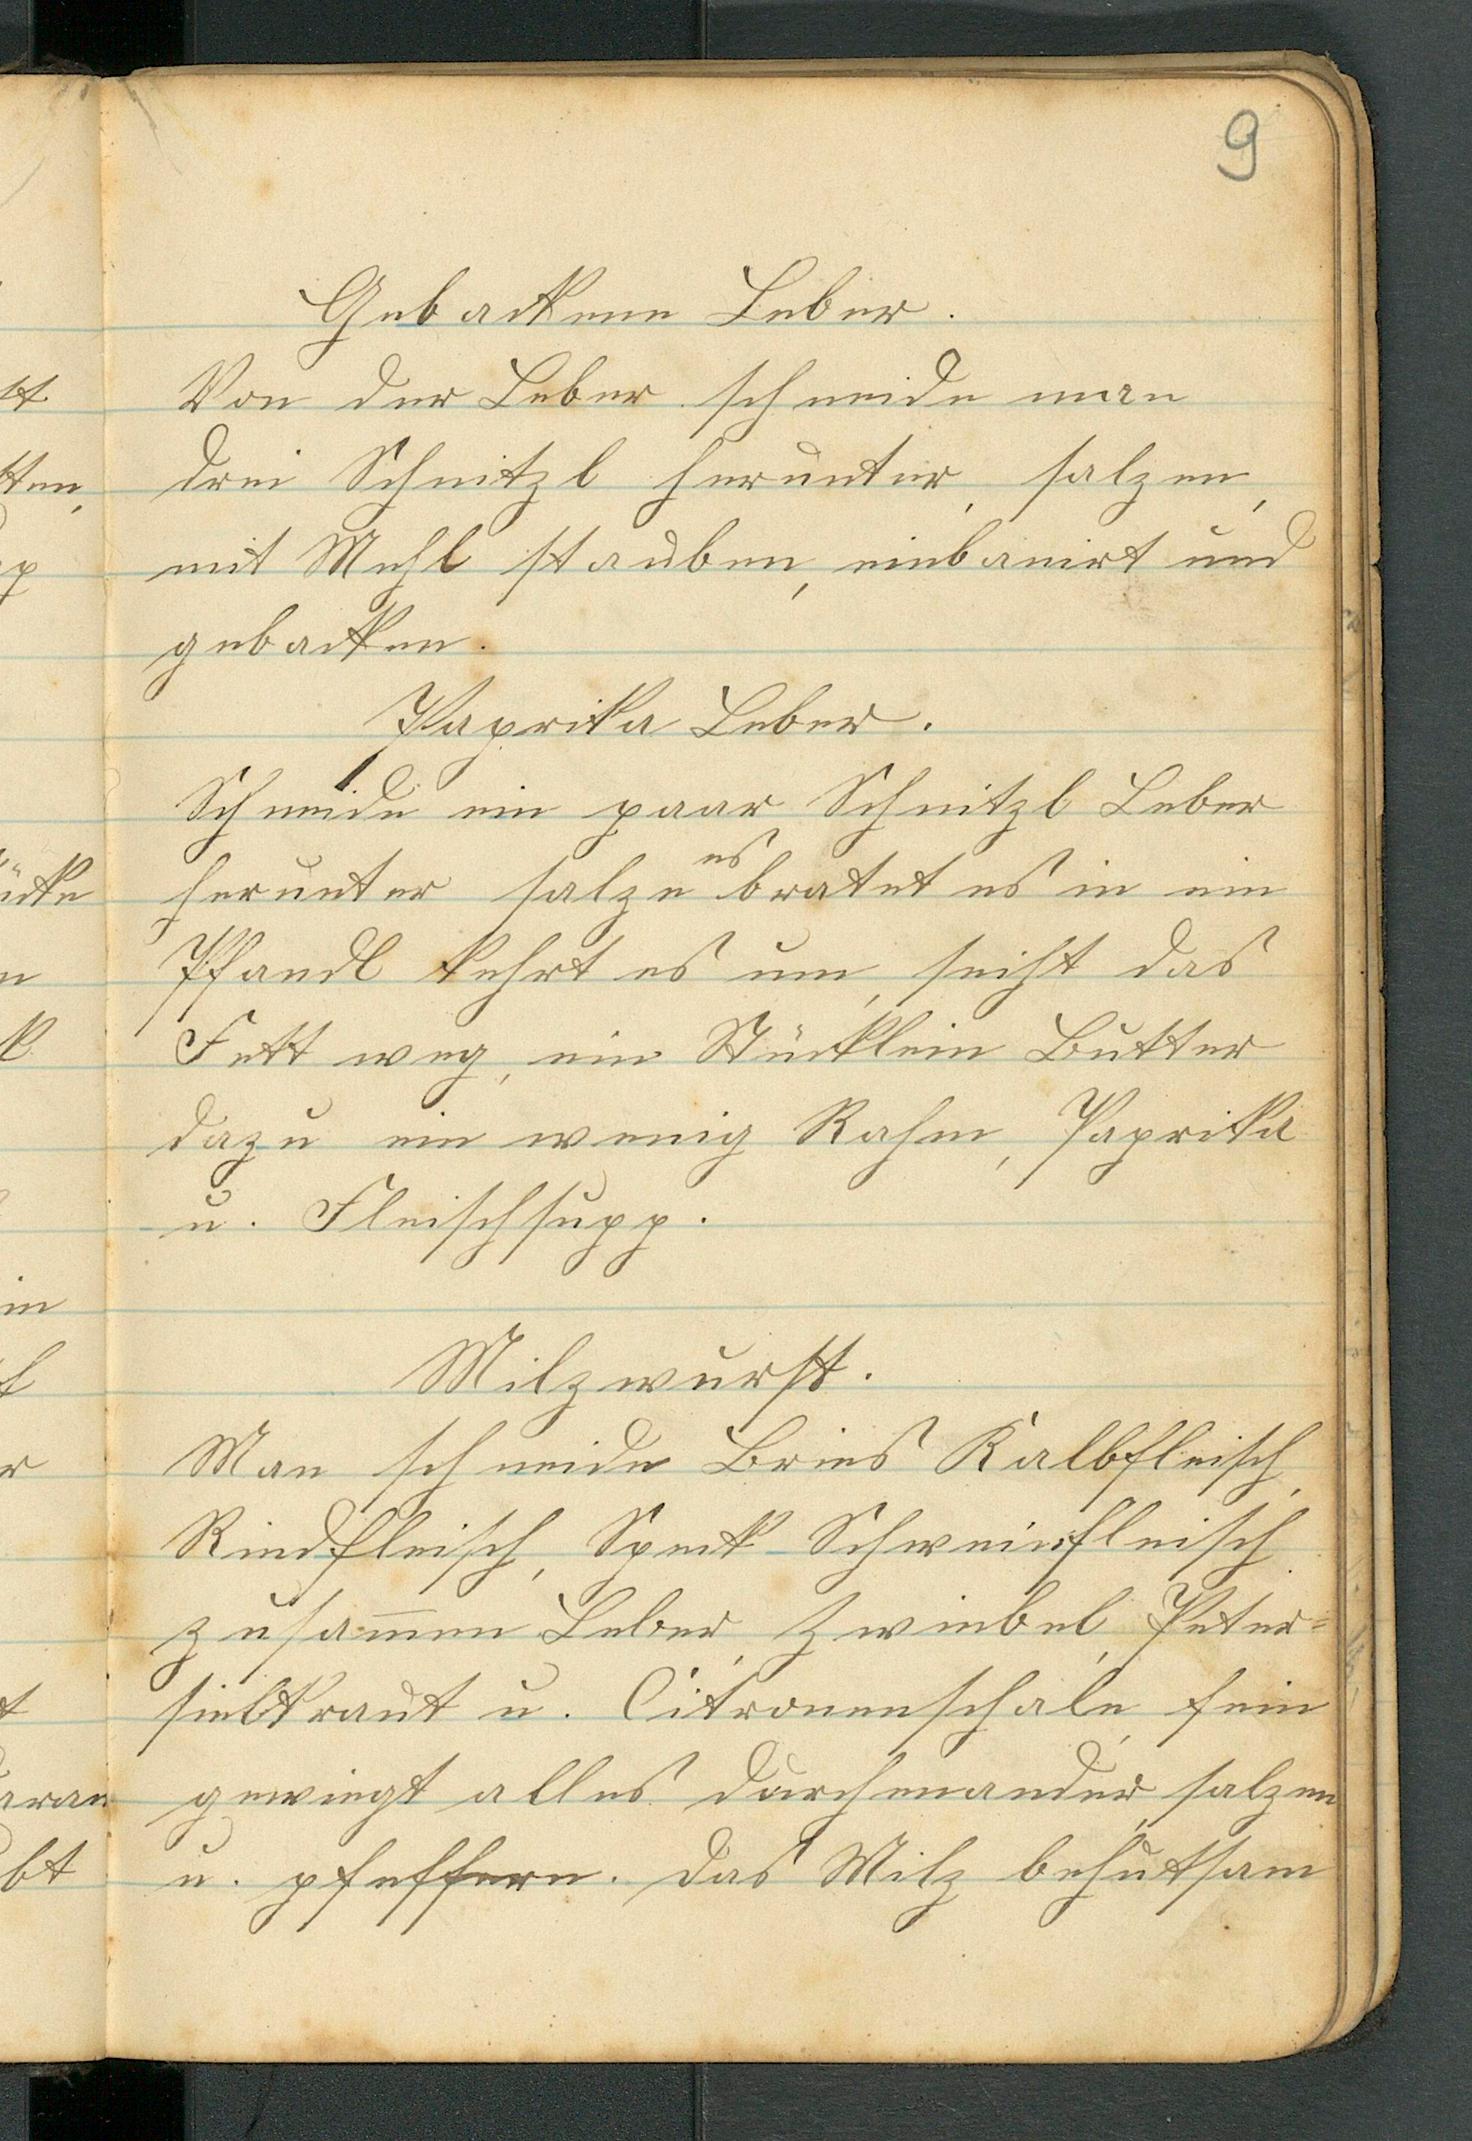 9
Gebackene Leber.
Von der Leber schneide man
drei Schnitzl herunter, salzen,
mit Mehl stauben, einbanirt und
gebacken.
Paprika Leber.
Schneide ein paar Schnitzl Leber
herunter salze es bratet es in ein
Pfandl kehrt es um, seiht das
Fett weg, ein Stücklein Butter
dazu ein wenig Rahm, Paprika
u. Fleischsupp.
Milzwurst.
Man schneide Bries Kalbfleisch,
Rindfleisch, Speck Schweinfleisch
zusam̅en Leber, Zwiebel, Peter=
sielkraut u. Citronenschale, fein
gewiegt alles durchenander, salzen
u. pfeffern. das Milz behutsam